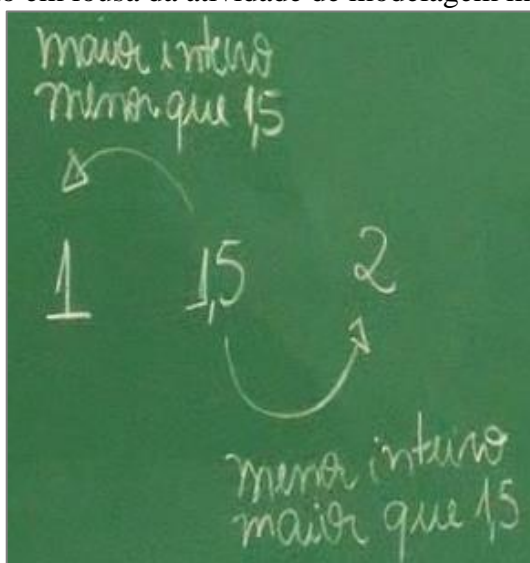 maior inteiro
menor que 1,5
1 1,5 2
menor inteiro
maior que 1,5